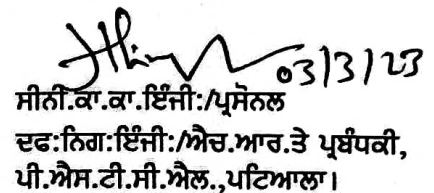 03/3/23
ਸੀਨੀ.ਕਾ.ਕਾ.ਇੰਜੀ:/ਪ੍ਰਸੋਨਲ
ਦਫ:ਨਿਗ:ਇੰਜੀ:/ਐਚ.ਆਰ.ਤੇ ਪ੍ਰਬੰਧਕੀ,
ਪੀ.ਐਸ.ਟੀ.ਸੀ.ਐਲ.,ਪਟਿਆਲਾ।